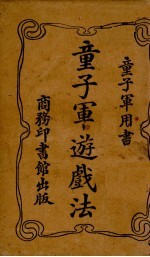 童子軍用書
童子軍遊戲法
商務印書館出版